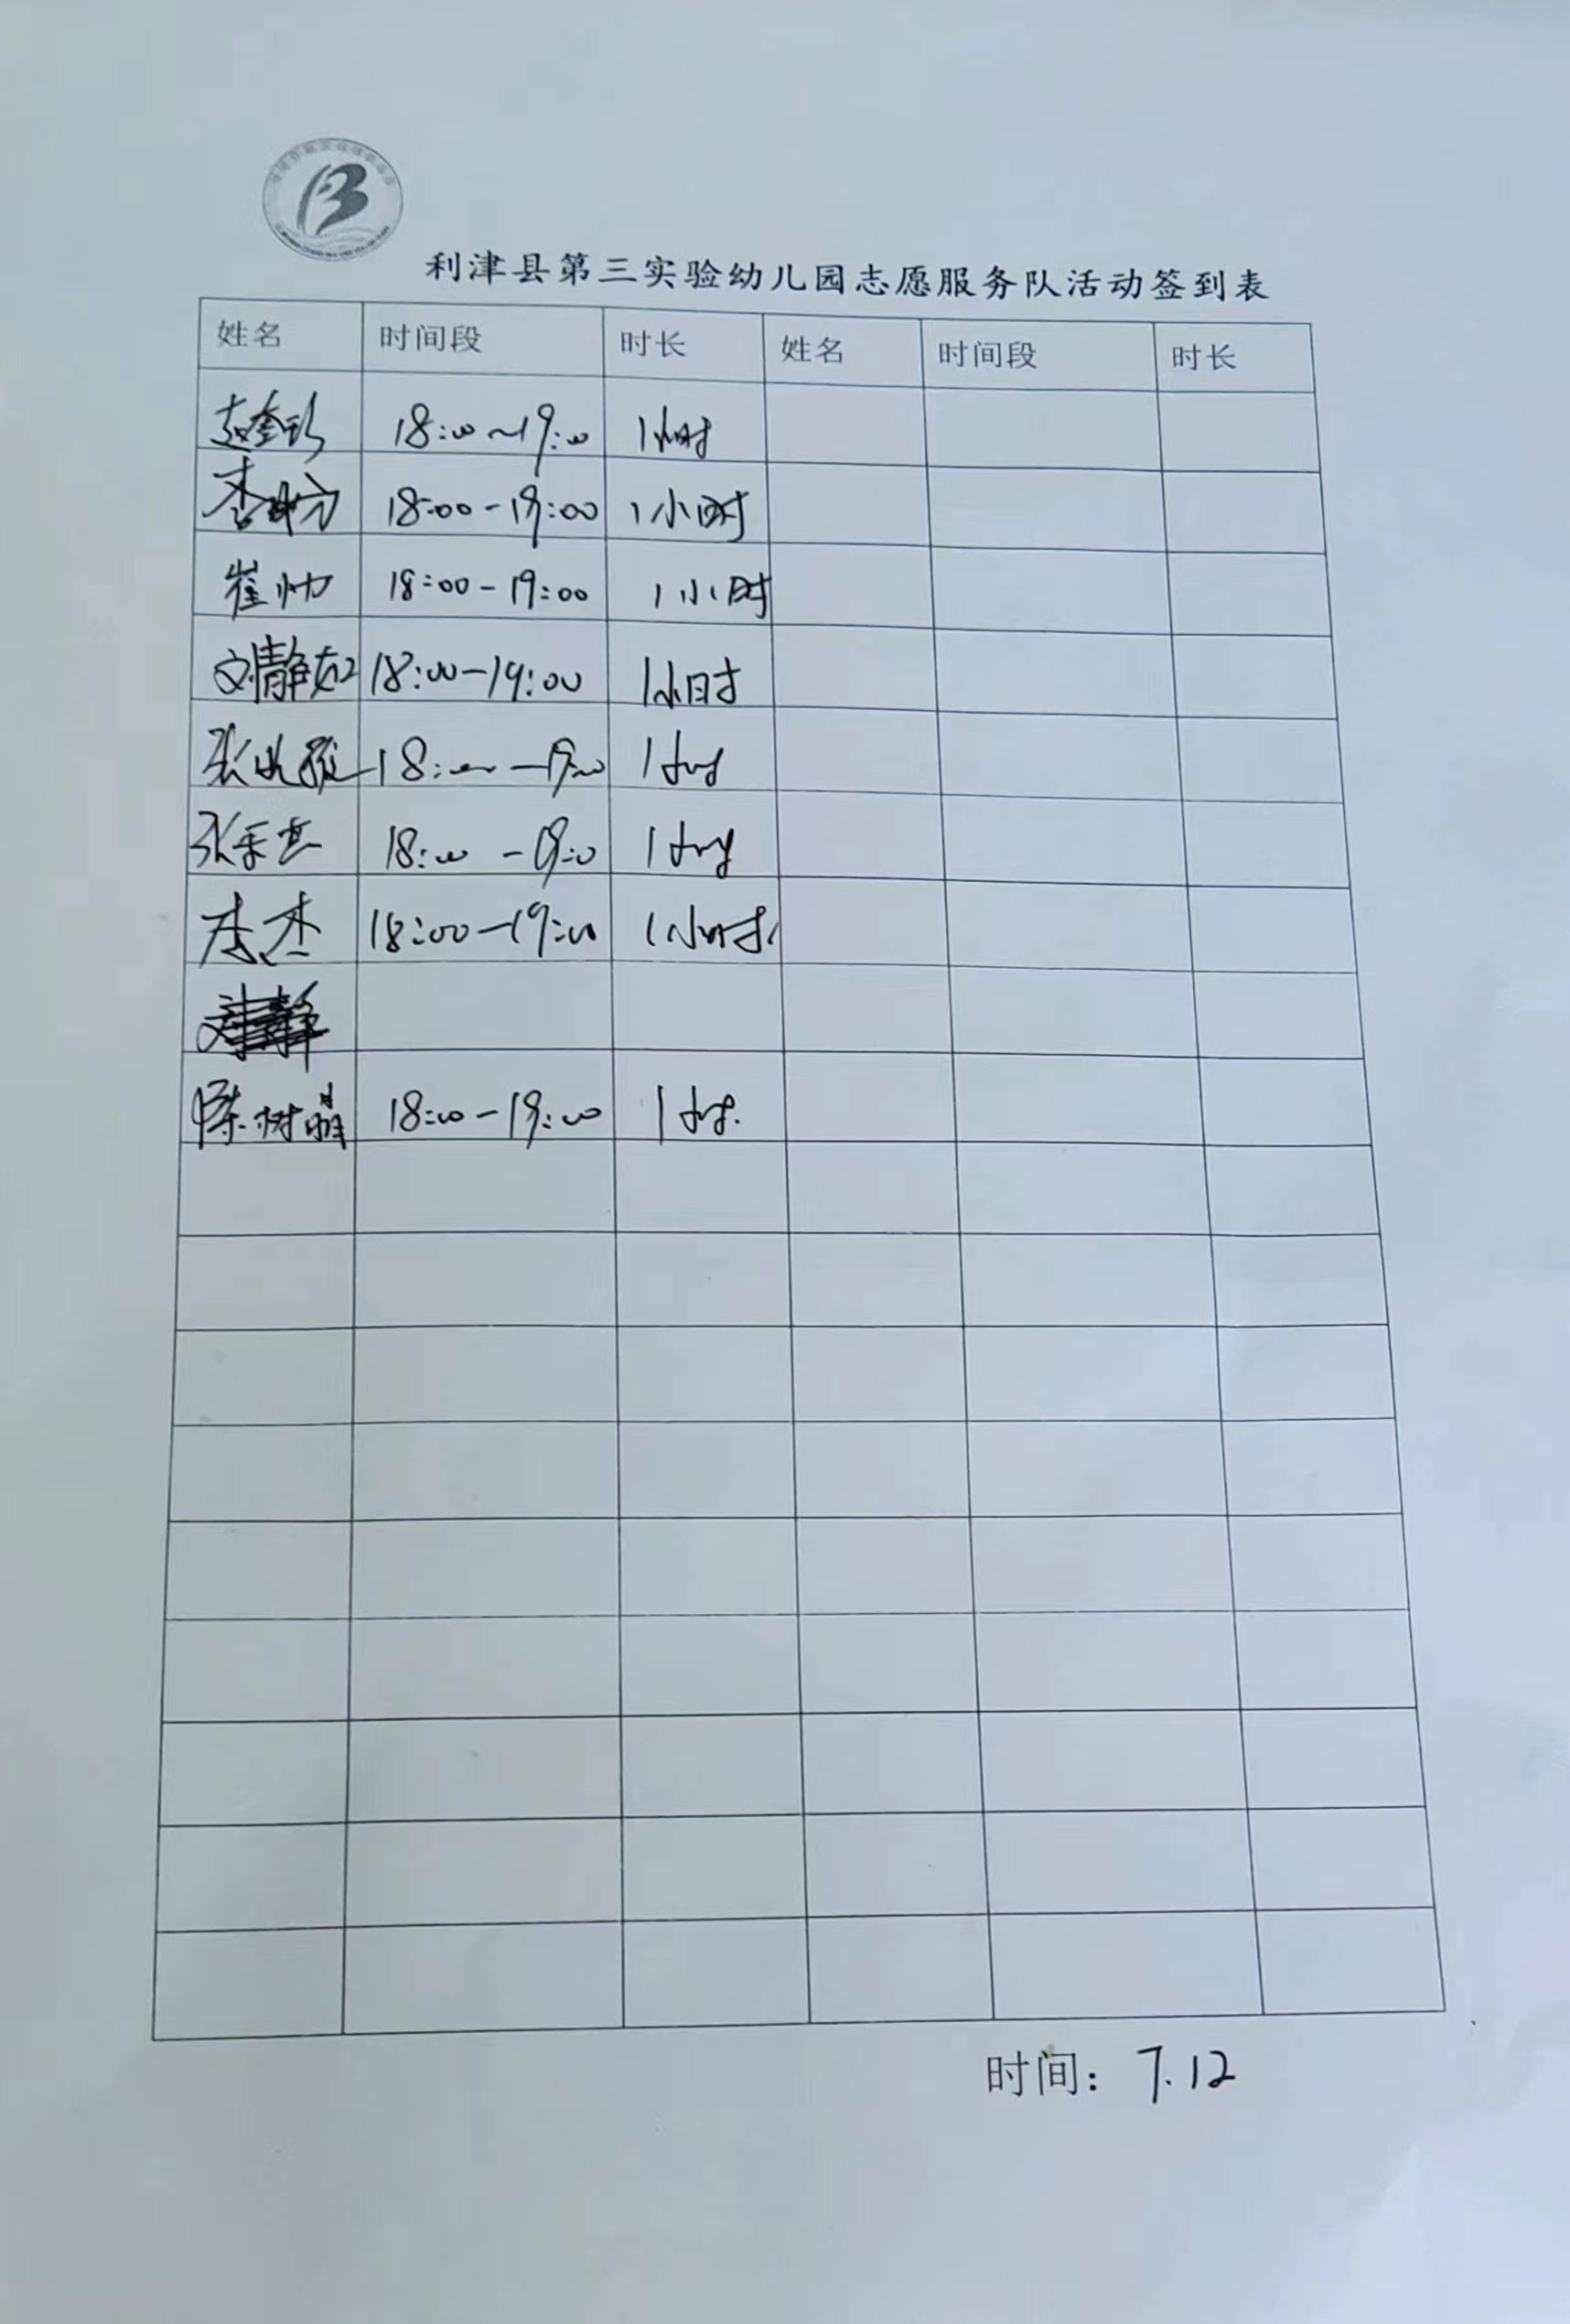 利津县第三实验幼儿园志愿服务队活动签到表
姓名 时间段 时长 姓名 时间段 时长
18:00~19:00 1小时
李 18:00-19:00 1小时
崔帅 18:00-19:00 1小时
刘静如 18:00-19:00 1小时
张 18:00-19:00 1小时
张 18:00-19:00 1小时
李杰 18:00-19:00 1小时
陈树晶 18:00-19:00 1小时
时间: 7.12